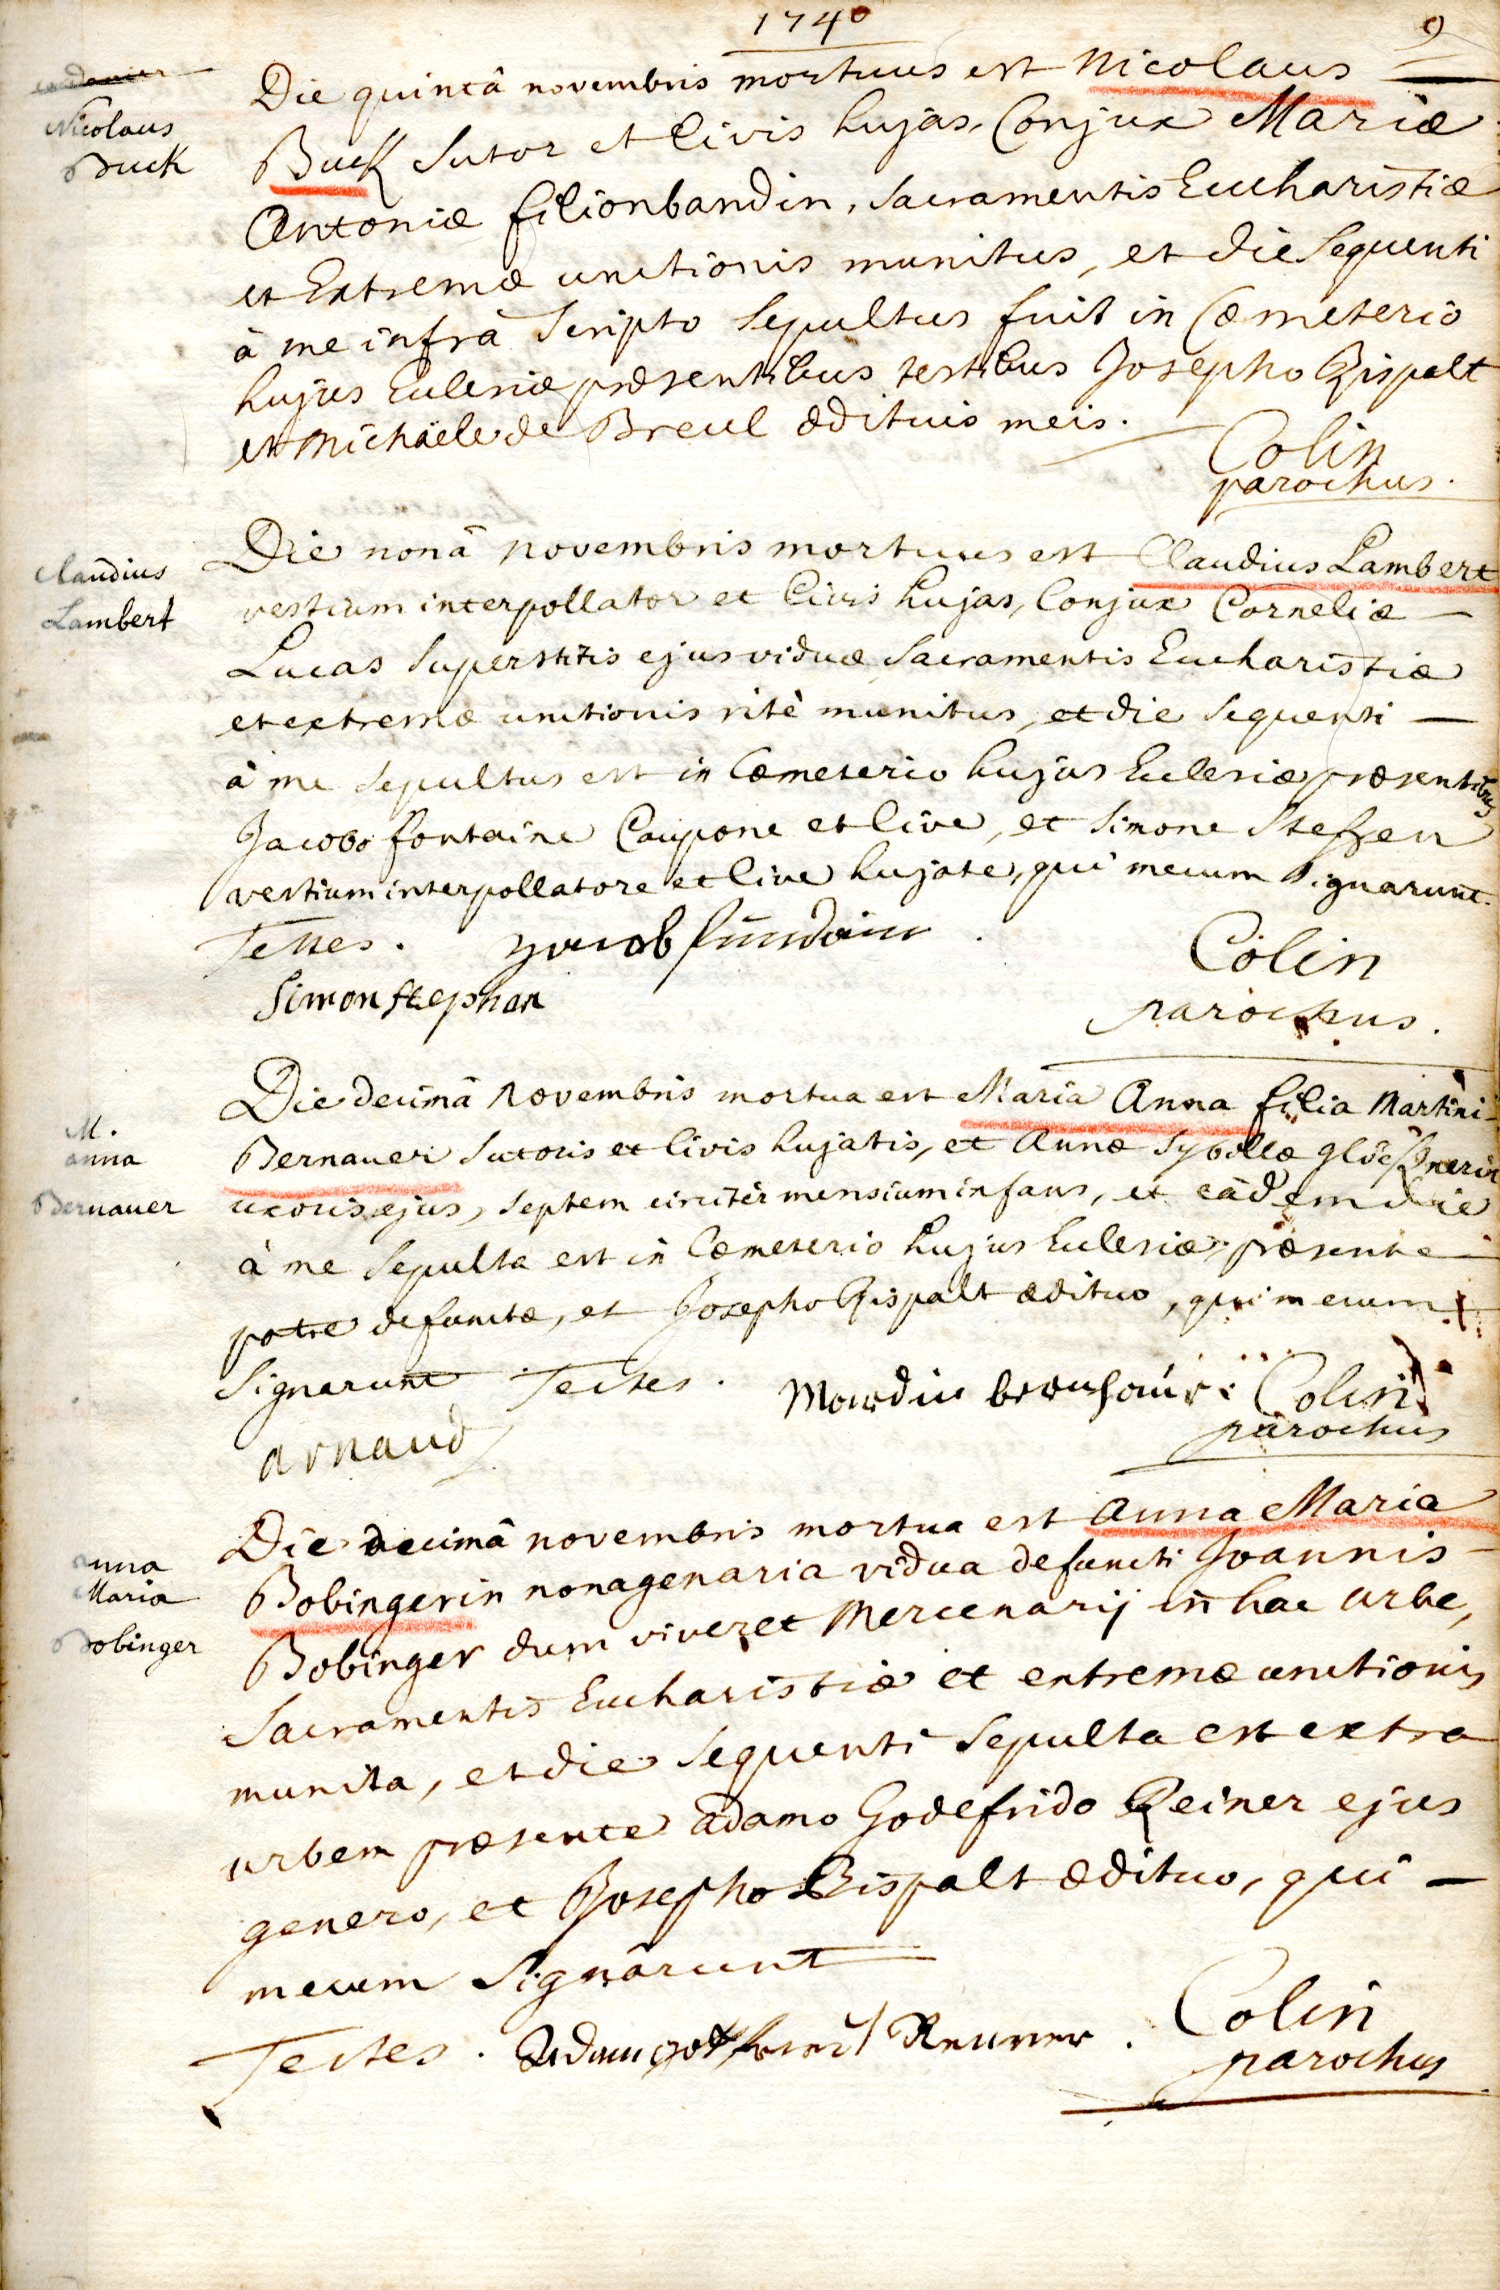 1740
9
Nicolaus
Buck
Die quintâ novembris mortuus est Nicolaus
Buck Sutor et Civis hujas, Conjux Mariæ
Antoniæ filionbandin, Sacramentis Eucharistiæ
et Extremæ unctionis munitus, et die Sequenti
à me infrà Scripto Sepultus fuit in Cœmeterio
hujus Eclesiæ præsentibus testibus Josepho Rispalt
et Michaële de Breul ædituis meis.
Colin
parochus.
Claudius
Lambert
Die nonâ novembris mortuus est Claudius Lambert
vestium interpollator et Civis hujas, Conjux Corneliæ
Lucas Superstitis ejus viduæ Sacramentis Eucharistiæ
et extremæ unctionis ritè munitus, et die Sequenti
à me Sepultus est in Cœmeterio hujus Eclesiæ præsentibus
Jacobo fontaine Caupone et Cive, et Simone Steffen
vestium interpollatore et Cive hujate, qui mecum Signarunt.
Testes. Colin
Simon stephan
parochus.
M.
anna
Bernauer
Die decimâ Novembris mortua est Maria Anna filia Martini
Bernauer Sutoris et Civis hujatis, et Annæ Sybillæ
uxoris ejus, Septem circiter mensium infans, et eâdem die
à me Sepulta est in Cœmeterio hujus Eclesiæ, præsente
patre defunctæ, et Josepho Rispalt ædituo, qui mecum
Signarunt Testes. Colin
parochus
arnaud
anna
Maria
Bobinger
Die decimâ novembris mortua est Anna Maria
Bobingerin nonagenaria vidua defuncti Joannis
Bobinger dum viveret Mercenarij in hac urbe,
Sacramentis Eucharistiæ et extremæ unctionis
munita, et die Sequenti Sepulta est extra
urbem præsente adamo Godefrido Reiner ejus
genero, et Josepho Rispalt ædituo, qui
mecum Signârunt
Testes. Adam Reuner. Colin
parochus